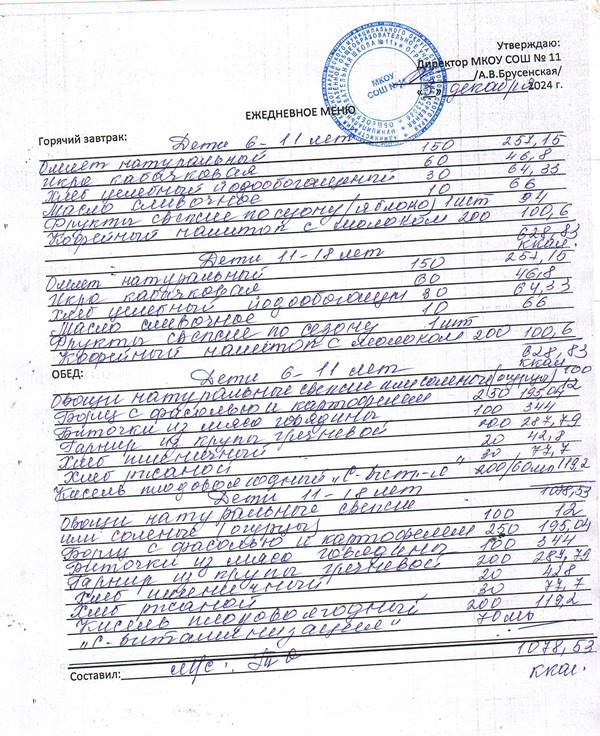 Утверждаю:
Директор МКОУ СОШ № 11
/А.В.Брусенская/
декабря 2024 г.
МКОУ
СОШ №
ЕЖЕДНЕВНОЕ МЕНЮ
Горячий завтрак: Дети 6-11 лет
Омлет натуральный 150 257,15
Икра кабачковая 60 46,8
Хлеб целебный йодообогащенный 30 64,33
Масло сливочное 10 66
Фрукты свежие по сезону /яблоко/ 1шт 94
Кофейный напиток с молоком 200 100,6
628,83
ккал.
Дети 11-18 лет
Омлет натуральный 150 257,15
Икра кабачковая 60 46,8
Хлеб целебный 30 64,33
Масло сливочное 10 66
Фрукты свежие по сезону 1шт
Кофейный напиток с молоком 200 100,6
628,83
ккал
ОБЕД: Дети 6-11 лет
Овощи натуральные свежие или соленые /огурцы/ 100 12
Борщ с фасолью и картофелем 250 195,04
Биточки из мяса говядины 100 344
Гарнир из крупы гречневой 200 287,79
Хлеб пшеничный 20 42,8
Хлеб ржаной 30 77,7
Кисель плодовоягодный 200 119,2
1078,53
Дети 11-18 лет
Овощи натуральные свежие
или соленые /огурцы/ 100 12
Борщ с фасолью и картофелем 250 195,04
Биточки из мяса говядины 100 344
Гарнир из крупы гречневой 200 287,79
Хлеб пшеничный 20 42,8
Хлеб ржаной 30 77,7
Кисель плодовоягодный 200 119,2
„С-витаминизацией" 70мл
1078,53
ккал.
Составил: